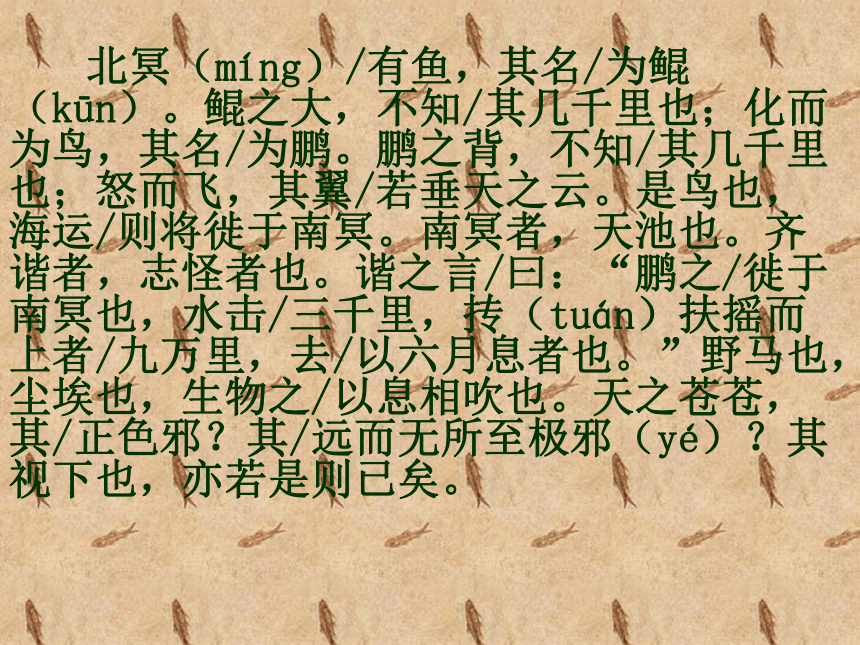 北冥（míng）/有鱼，其名/为鲲
（kūn）。鲲之大，不知/其几千里也；化而
为鸟，其名/为鹏。鹏之背，不知/其几千里
也；怒而飞，其翼/若垂天之云。是鸟也，
海运/则将徙于南冥。南冥者，天池也。齐
谐者，志怪者也。谐之言/曰：“鹏之/徙于
南冥也，水击/三千里，抟（tuán）扶摇而
上者/九万里，去/以六月息者也。”野马也，
尘埃也，生物之/以息相吹也。天之苍苍，
其/正色邪？其/远而无所至极邪（yé）？其
视下也，亦若是则已矣。